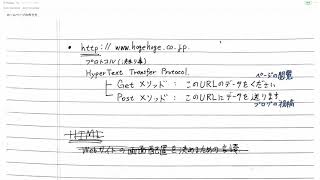 ホームページの作り方
• http://www.hogehoge.co.jp
プロトコル(決まり事)
HyperText Transfer Protocol.
Get メソッド : このURLのデータをください
ページの閲覧
Post メソッド : このURLにデータを送ります
ブログの投稿
HTML
Webサイトの画面配置を決めるための言語